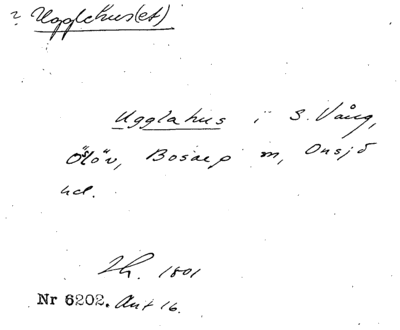 ? Ugglehus(et)
Ugglahus i S. Vång,
Ölöv, Bosarp m, Onsjö
hd.
Lh. 1801
Nr 6202. Avt 16.